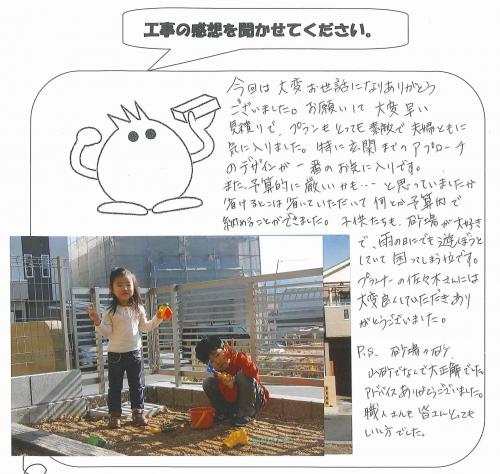 工事の感想を聞かせてください。
今回は大変お世話になりありがとう
ございました。お願いして大変早い
見積りで、プランもとってモ素敵で夫婦ともに
気に入りました。特に玄関までのアプローチ
のデザインが一番のお気に入りです。
また予算的に厳しいかも…と思っていましたが
省けるとこは省いていただいて何とか予算内で
納めることができました。子供たちも、砂場が大好き
で、雨の日にでも遊ぼうと
していて困ってしまう位です。
プランナーの佐々木さんには
大変良くしていただきあり
がとうございました。
P.S. 砂場の砂
山砂でなしで大正解でした。
アドバイスありがとうございました。
職人さんも皆さんとっても
いい方でした。